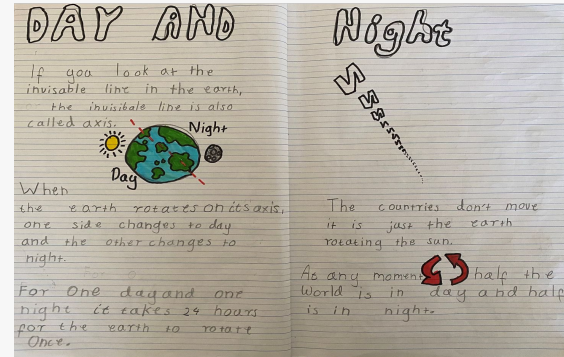 DAY AND
If you look at the
invisable line in the earth,
the invisibale line is also
called axis.
Night
Day
When
the earth rotates on its axis,
one side changes to day
and the other changes to
night.
For One day and one
night it takes 24 hours
for the earth to rotate
Once.
Night
The countries don't move
it is just the earth
rotating the sun.
At any moment half the
World is in day and half
is in night.